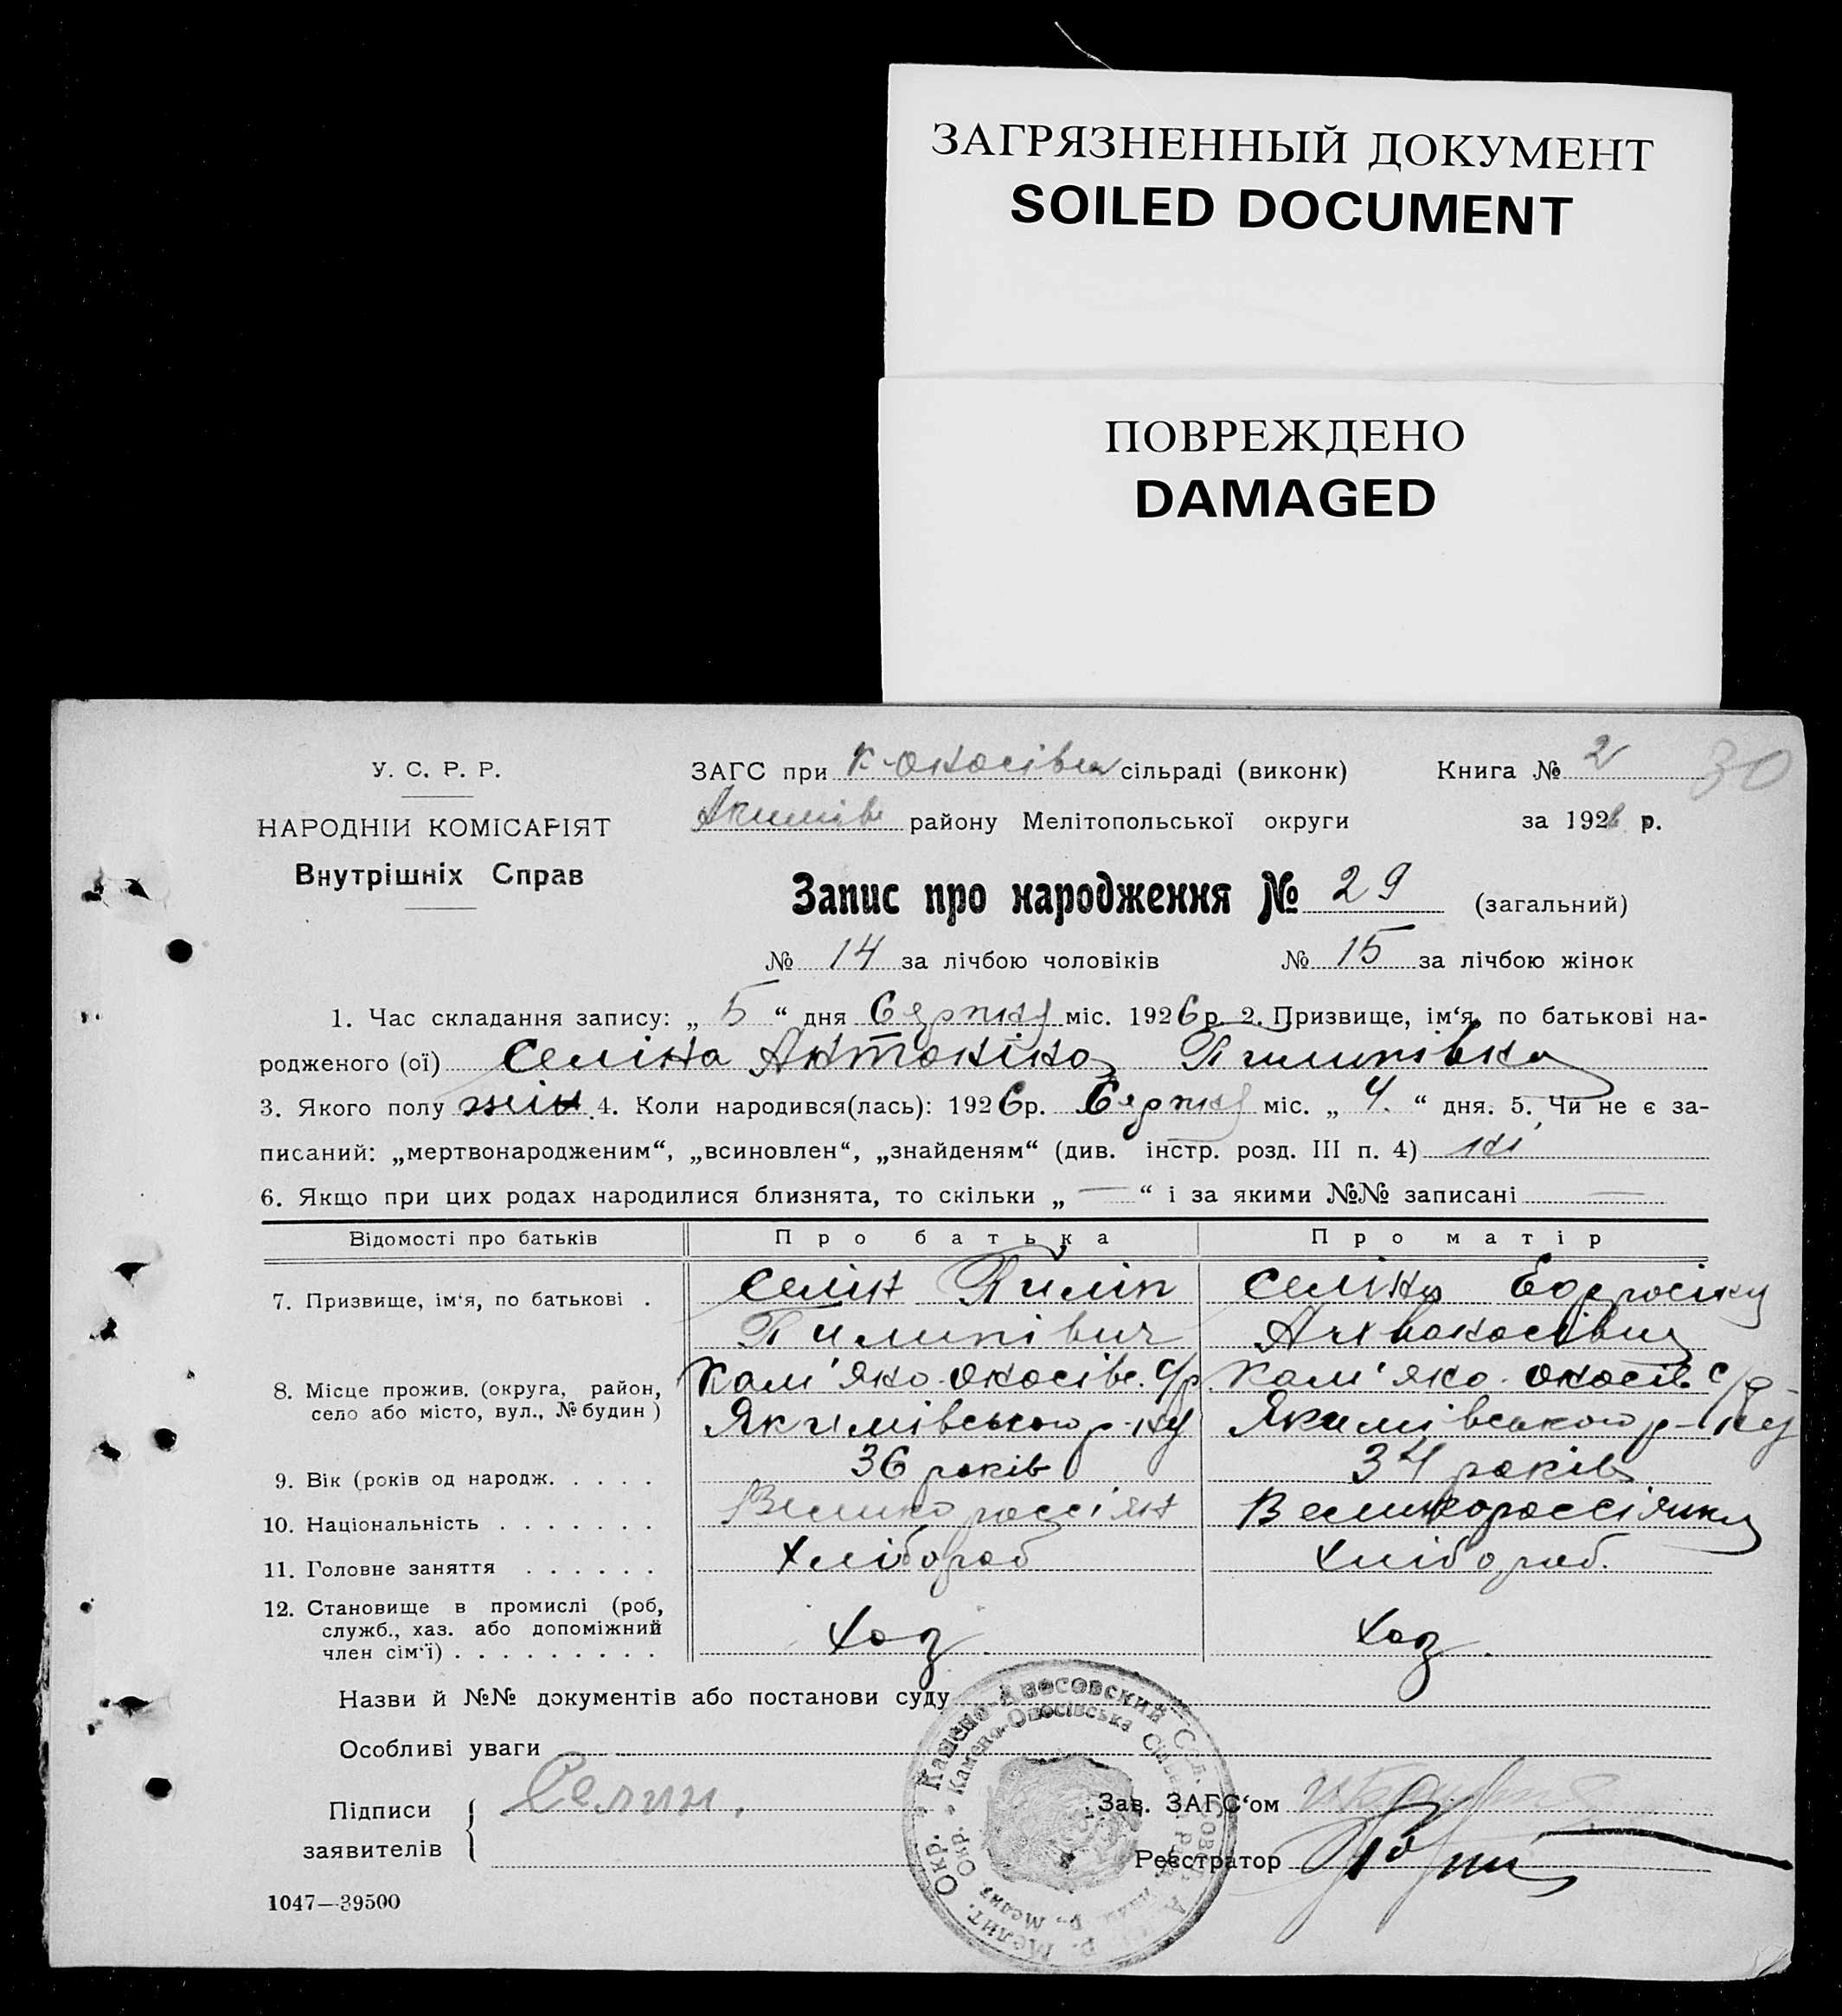 ЗАГРЯЗНЕННЫЙ ДОКУМЕНТ
SOILED DOCUMENT
ПОВРЕЖДЕНО
DAMAGED
У. С. Р. Р.
НАРОДНІЙ КОМІСАРІЯТ
Внутрішніх Справ
ЗАГС при К-Оносівск сільраді (виконк) Книга № 2 30
Акимів. району Мелітопольської округи за 1926 р.
Запис про народження № 29 (загальний)
№ 14 за лічбою чоловіків № 15 за лічбою жінок
1. Час складання запису: „ 5 “ дня Серпня міс. 1926 р. 2. Призвище, ім‘я, по батькові на-
родженого (ої) Селіна Антоніна Пилипівна
3. Якого полу жін. 4. Коли народився(лась): 1926 р. Серпня міс. „ 4. “ дня. 5. Чи не є за-
писаний: „мертвонародженим“, „всиновлен“, „знайденям“ (див. інстр. розд. III п. 4) ні
6. Якщо при цих родах народилися близнята, то скільки „ — “ і за якими №№ записані —
Відомості про батьків Про батька Про матір
7. Призвище, ім‘я, по батькові . Селін Пилип Селіна Єфросіня
Пилипівич Афанасівна
8. Місце прожив. (округа, район, Кам'яно-Оносівс. с/р Кам'яно-Оносів. с/р
село або місто, вул., № будин) Якимівського р-ну Якимівського р-ну
9. Вік (років од народж. . . . . 36 років 34 років
10. Національність . . . . . . . Великороссіян Великороссіянка
11. Головне заняття . . . . . . Хлібороб Хлібороб.
12. Становище в промислі (роб,
служб., хаз. або допоміжний Хаз. Хаз.
член сім‘ї) . . . . . . . . .
Назви й №№ документів або постанови суду
Особливі уваги
Підписи Селин. Зав. ЗАГС‘ом
заявителів Реєстратор
Камено-Аносовский Сел.
Камено-Оносівська
Мелит. Окр.
1047—39500